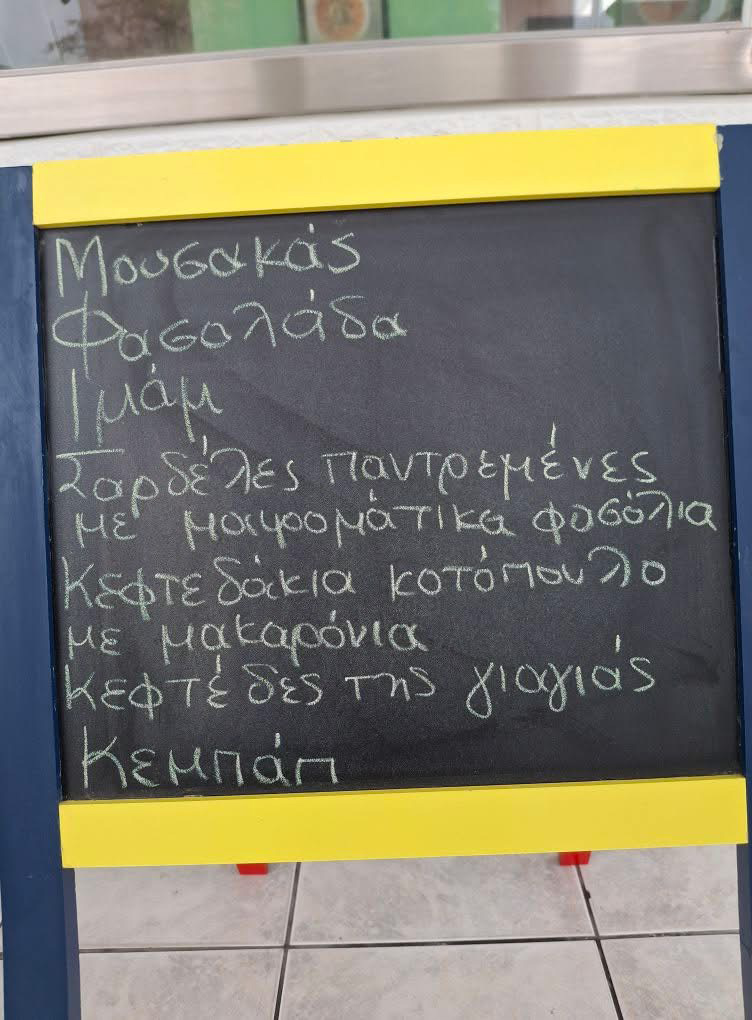 Μουσακάς
Φασολάδα
Ιμάμ
Σαρδέλες παντρεμένες
με μαυρομάτικα φασόλια
Κεφτεδάκια κοτόπουλο
με μακαρόνια
Κεφτέδες της γιαγιάς
Κεμπάπ